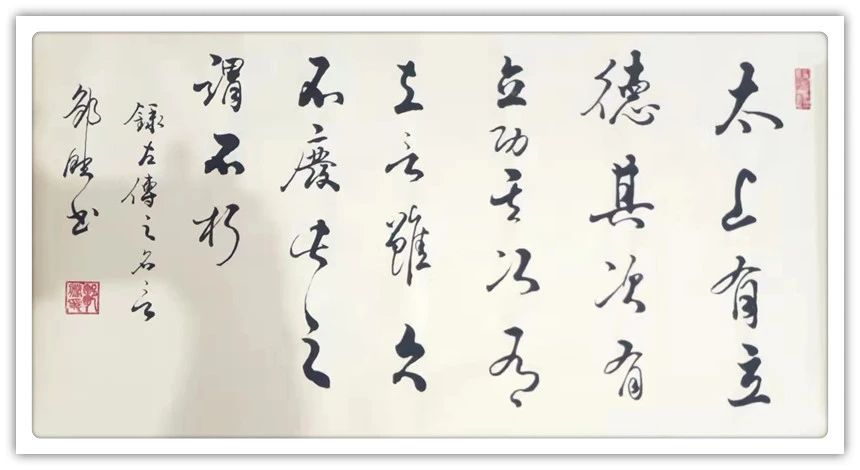 太上有立
德其次有
立功其次有
立言雖久
不廢此之
謂不朽
録左傳之名言
书